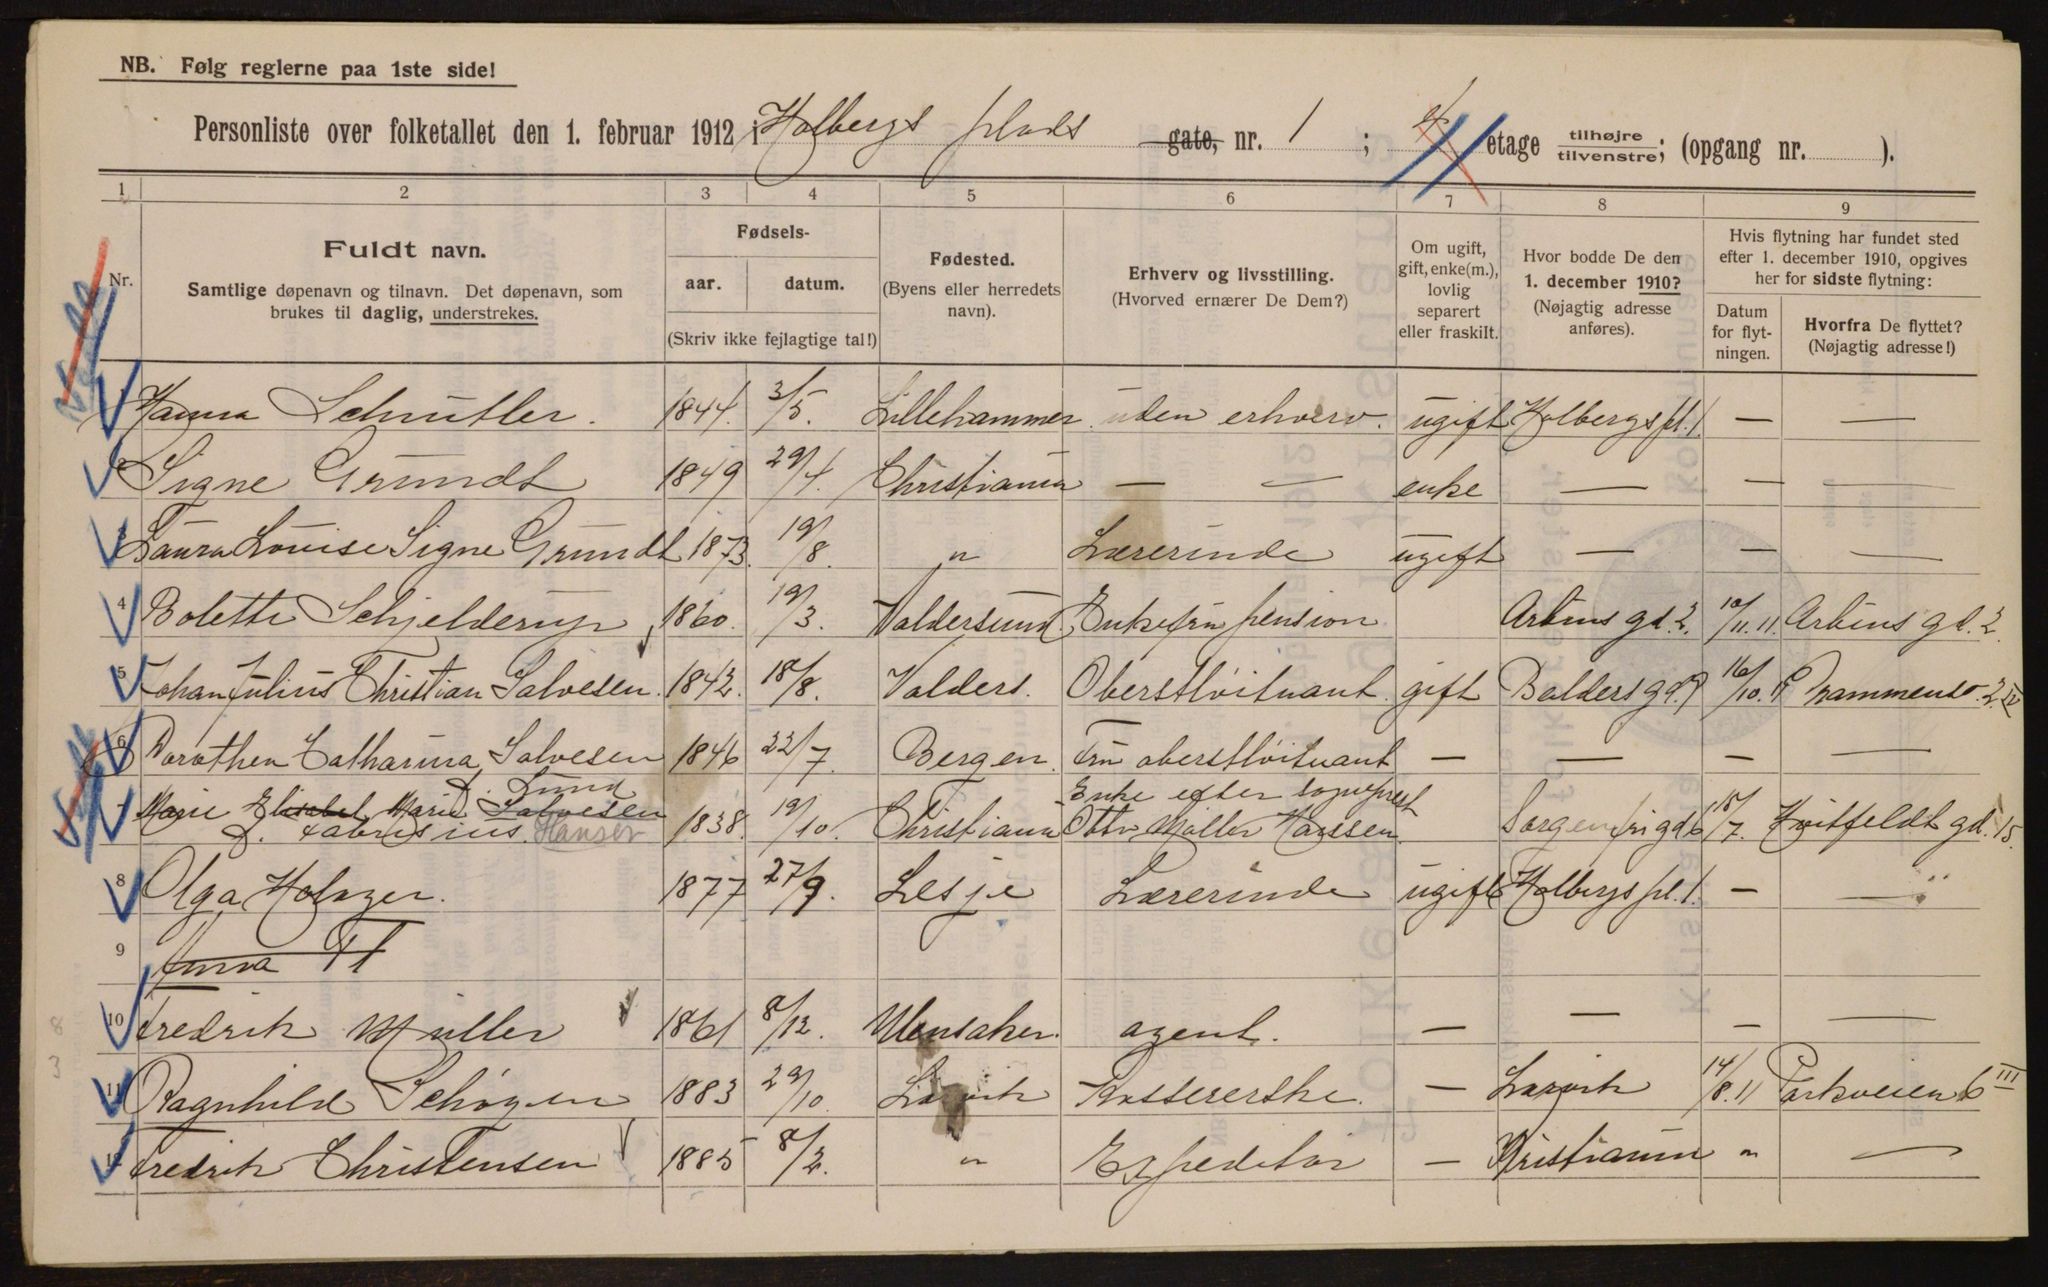 NB. Følg reglerne paa 1ste side!
Personliste over folketallet den 1. februar 1912 i Holbergs plads gate, nr. 1 ; etage tilhøjre tilvenstre; (opgang nr. ).
1 2 3 4 5 6 7 8 9
Nr.
Fuldt navn.
Samtlige døpenavn og tilnavn. Det døpenavn, som
brukes til daglig, understrekes.
Fødsels-
aar. datum.
(Skriv ikke fejlagtige tal!)
Fødested.
(Byens eller herredets
navn).
Erhverv og livsstilling.
(Hvorved ernærer De Dem?)
Om ugift,
gift, enke(m.),
lovlig
separert
eller fraskilt.
Hvor bodde De den
1. december 1910?
(Nøjagtig adresse
anføres).
Hvis flytning har fundet sted
efter 1. december 1910, opgives
her for sidste flytning:
Datum
for flyt-
ningen.
Hvorfra De flyttet?
(Nøjagtig adresse!)
1 Hanna 1844. 3/5. Lillehammer uden erhverv. ugift Holbergs pl. 1. — —
2 Signe Grundt 1849 29/4. Christiania — — enke — — —
3 Laura Louise Signe Grundt 1873. 19/8. " Lærerinde ugift — — —
4 Bolette Schjelderup 1860. 19/3. Valdersund Enkefru pension Arbins gd. 2. 10/11.11. Arbins gd. 2.
5 Johan Julius Christian Salvesen. 1842. 18/8. Valders. Oberstløitnant. gift Balders gd. 16/10. 2 IV
6 Dorothea Catharina Salvesen f. Lund 1846 22/7. Bergen. Fru oberstløitnant — — — —
7 Marie Elisabet Marie Salvesen f. Fabrisius. Hansen 1838. 19/10. Christiania Enke efter sogneprest Otto Møller Hanssen. Sorgenfrigd 6 15/7. Hvitfeldt gd. 15.
8 Olga 1877 27/9. Lesje Lærerinde ugift Holbergs pl. 1. — —
9 Anna
10 Fredrik Müller 1861 8/12. Ullensaker. agent. — — — —
11 Ragnhild Schøyen 1883 29/10. Larvik Kassererske. — Larvik 14/8.11 Parkveien 6 III
12 Fredrik Christensen 1885 8/2. " Expeditør — Kristiania " —